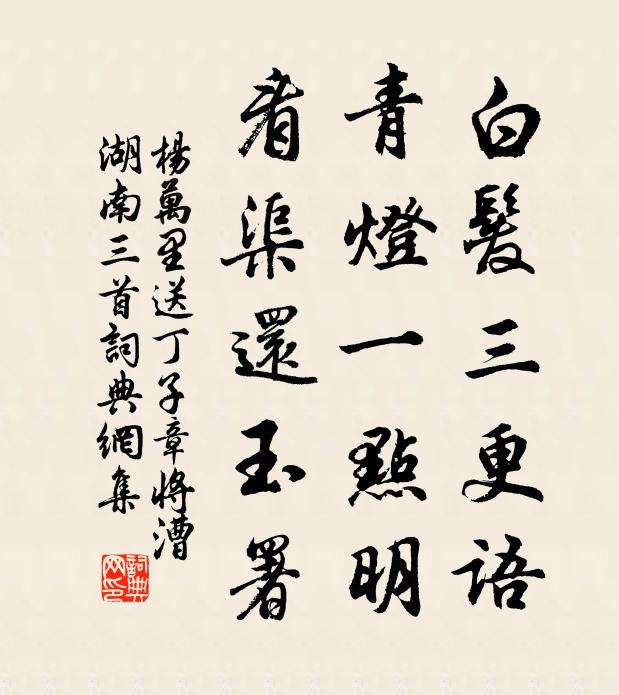 白髮三更語
青燈一點明
看渠還玉署
楊萬里送丁子章將漕
湖南三首詞典網集
詞典
网印